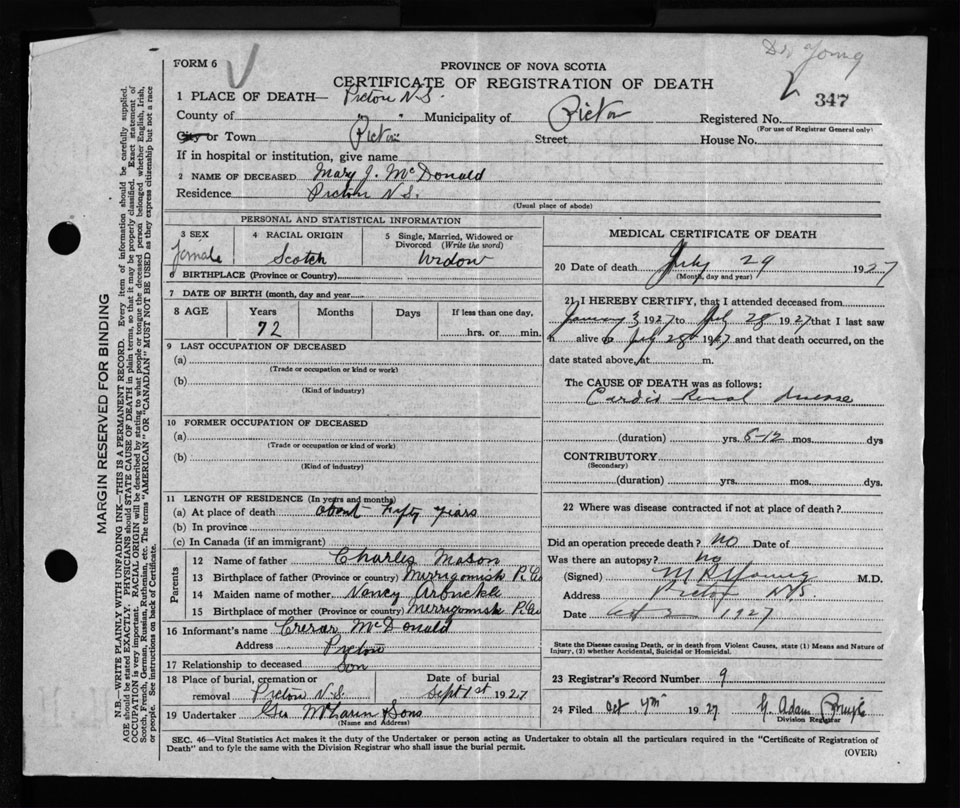 Dr Young
FORM 6
PROVINCE OF NOVA SCOTIA
CERTIFICATE OF REGISTRATION OF DEATH
347
1 PLACE OF DEATH— Pictou N.S.
County of " " Municipality of Pictou Registered No.
(For use of Registrar General only)
City or Town Pictou Street House No.
If in hospital or institution, give name
2 NAME OF DECEASED Mary J. McDonald
Residence Pictou N.S.
(Usual place of abode)
PERSONAL AND STATISTICAL INFORMATION
3 SEX 4 RACIAL ORIGIN 5 Single, Married, Widowed or Divorced (Write the word)
female Scotch Widow
6 BIRTHPLACE (Province or Country)
7 DATE OF BIRTH (month, day and year
8 AGE Years Months Days If less than one day.
72 hrs. or min.
9 LAST OCCUPATION OF DECEASED
(a)
(Trade or occupation or kind or work)
(b)
(Kind of industry)
10 FORMER OCCUPATION OF DECEASED
(a)
(Trade or occupation or kind of work)
(b)
(Kind of industry)
11 LENGTH OF RESIDENCE (In years and months)
(a) At place of death about fifty years
(b) In province
(c) In Canada (if an immigrant)
Parents
12 Name of father Charles Mason
13 Birthplace of father (Province or country) Merrigomish P. Co
14 Maiden name of mother Nancy Arbuckle
15 Birthplace of mother (Province or country) Merrigomish P. Co
16 Informant's name Crerar McDonald
Address Pictou
17 Relationship to deceased Son
18 Place of burial, cremation or removal Pictou N.S. Date of burial Sept 1st 1927
19 Undertaker Geo McLaren & Sons
(Name and Address)
MEDICAL CERTIFICATE OF DEATH
20 Date of death July 29 1927
(Month, day and year)
21 I HEREBY CERTIFY, that I attended deceased from
January 3 1927 to July 28 1927 that I last saw
h alive July 28 1927 and that death occurred, on the
date stated above, at m.
The CAUSE OF DEATH was as follows:
Cardio Renal disease
(duration) yrs. 6-12 mos. dys
CONTRIBUTORY
(Secondary)
(duration) yrs. mos. dys.
22 Where was disease contracted if not at place of death?
Did an operation precede death? no Date of
Was there an autopsy? no
(Signed) M R Young M.D.
Address Pictou N.S.
Date Oct 1927
State the Disease causing Death, or in death from Violent Causes, state (1) Means and Nature of
Injury, (2) whether Accidental, Suicidal or Homicidal.
23 Registrar's Record Number 9
24 Filed Oct 4th 1927 G. Adam
Division Registrar
SEC. 46—Vital Statistics Act makes it the duty of the Undertaker or person acting as Undertaker to obtain all the particulars required in the "Certificate of Registration of
Death" and to fyle the same with the Division Registrar who shall issue the burial permit.
(OVER)
MARGIN RESERVED FOR BINDING
N.B.—WRITE PLAINLY WITH UNFADING INK—THIS IS A PERMANENT RECORD. Every item of information should be carefully supplied.
AGE should be stated EXACTLY. PHYSICIANS should STATE CAUSE OF DEATH in plain terms, so that it may be properly classified. Exact statement of
OCCUPATION is very important. RACIAL ORIGIN will be described by stating to what people or tongue the deceased person belonged whether English, Irish,
Scotch, French, German, Russian, Ruthenian, etc. The terms "AMERICAN" OR "CANADIAN" MUST NOT BE USED as they express citizenship but not a race
or people. See instructions on back of Certificate.